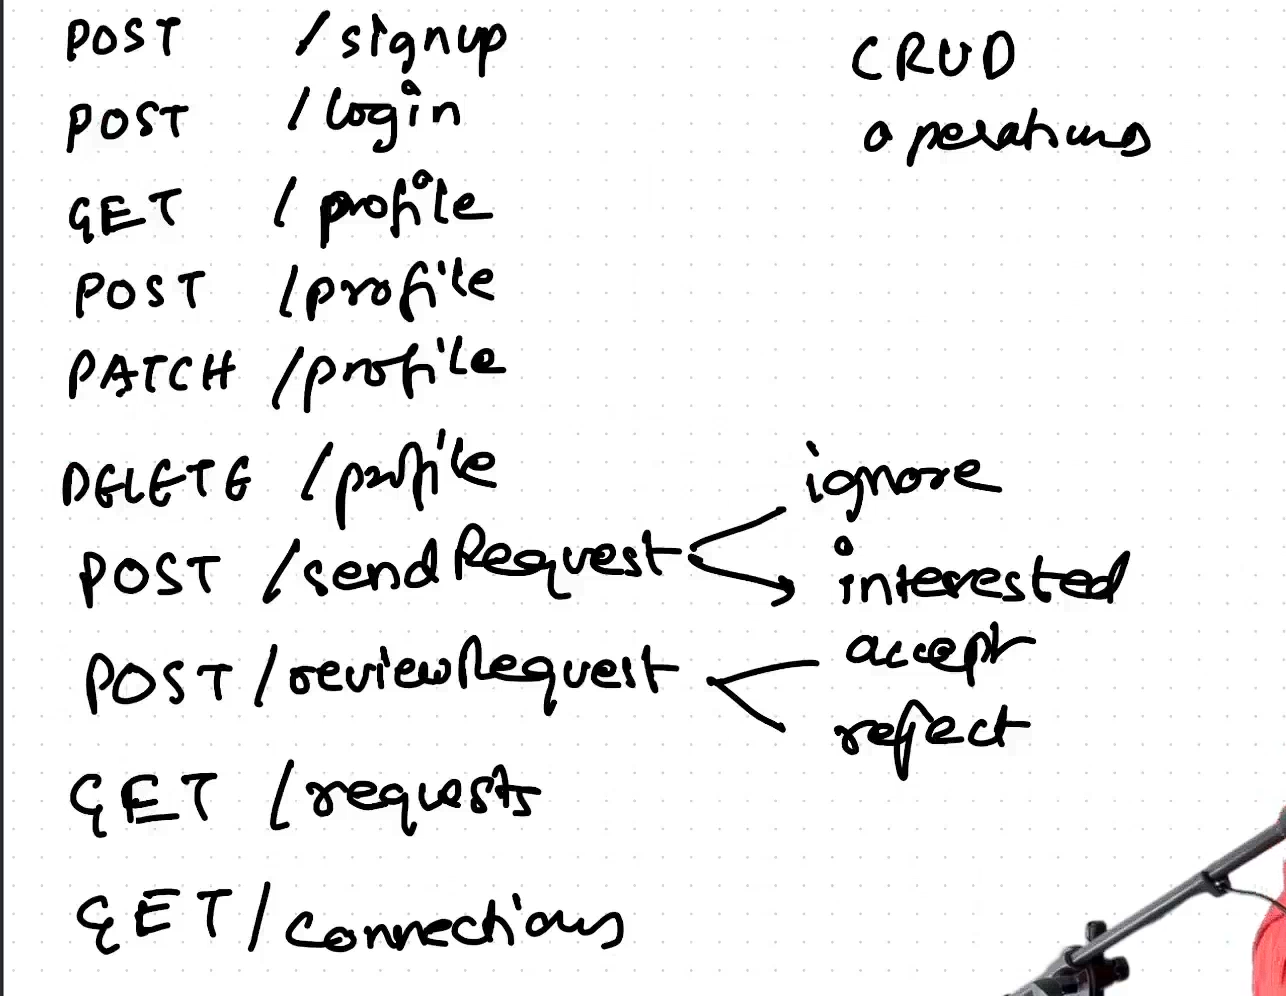 POST /signup
CRUD
operations
POST /login
GET /profile
POST /profile
PATCH /profile
DELETE /profile
POST /sendRequest
ignore
interested
POST /reviewRequest
accept
reject
GET /requests
GET /connections